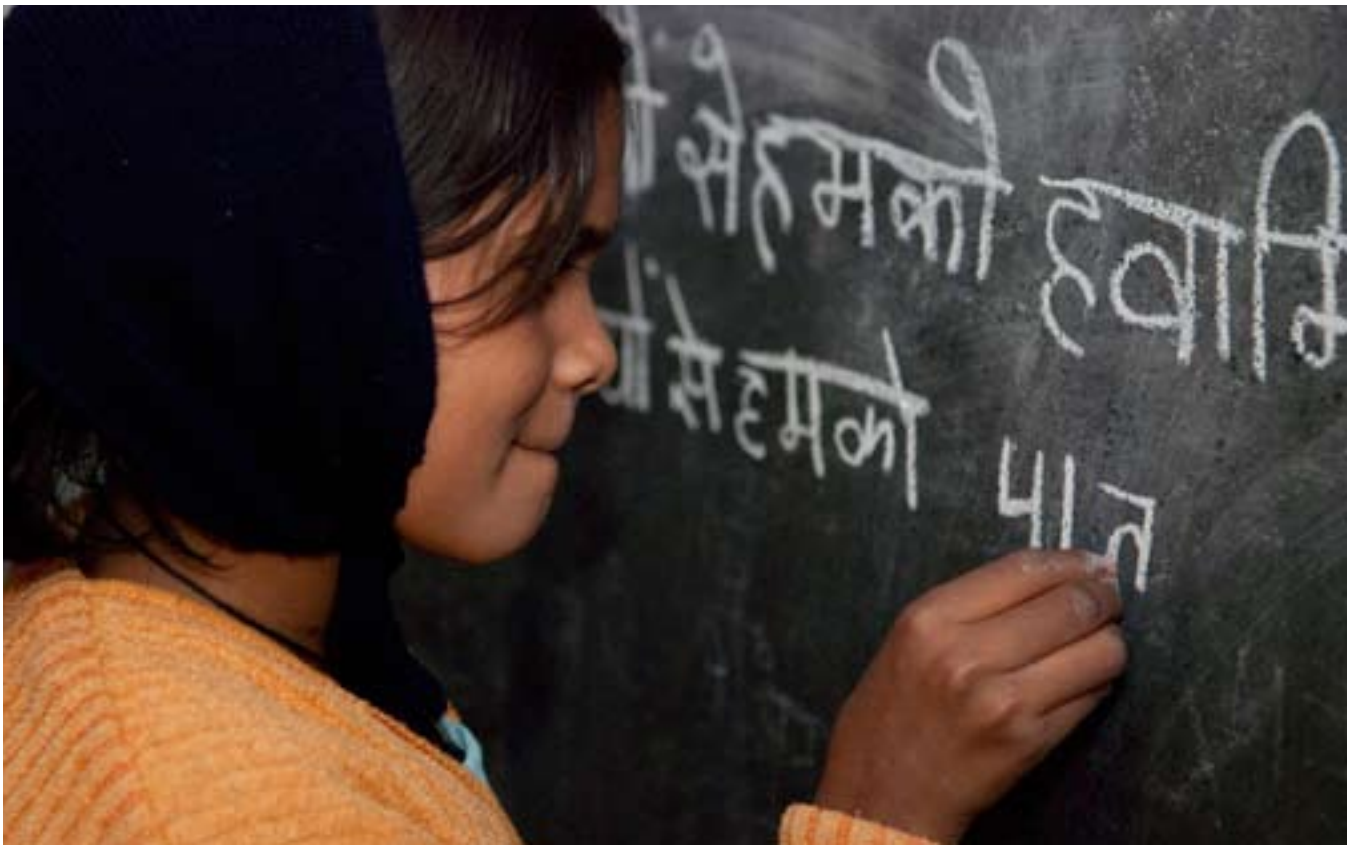 से हमको हवा
से हमको पान